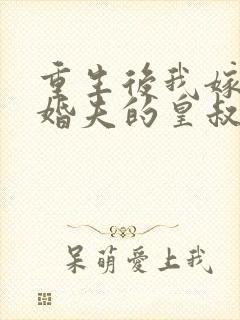 重生後我嫁
婚夫的皇叔
呆萌愛上我